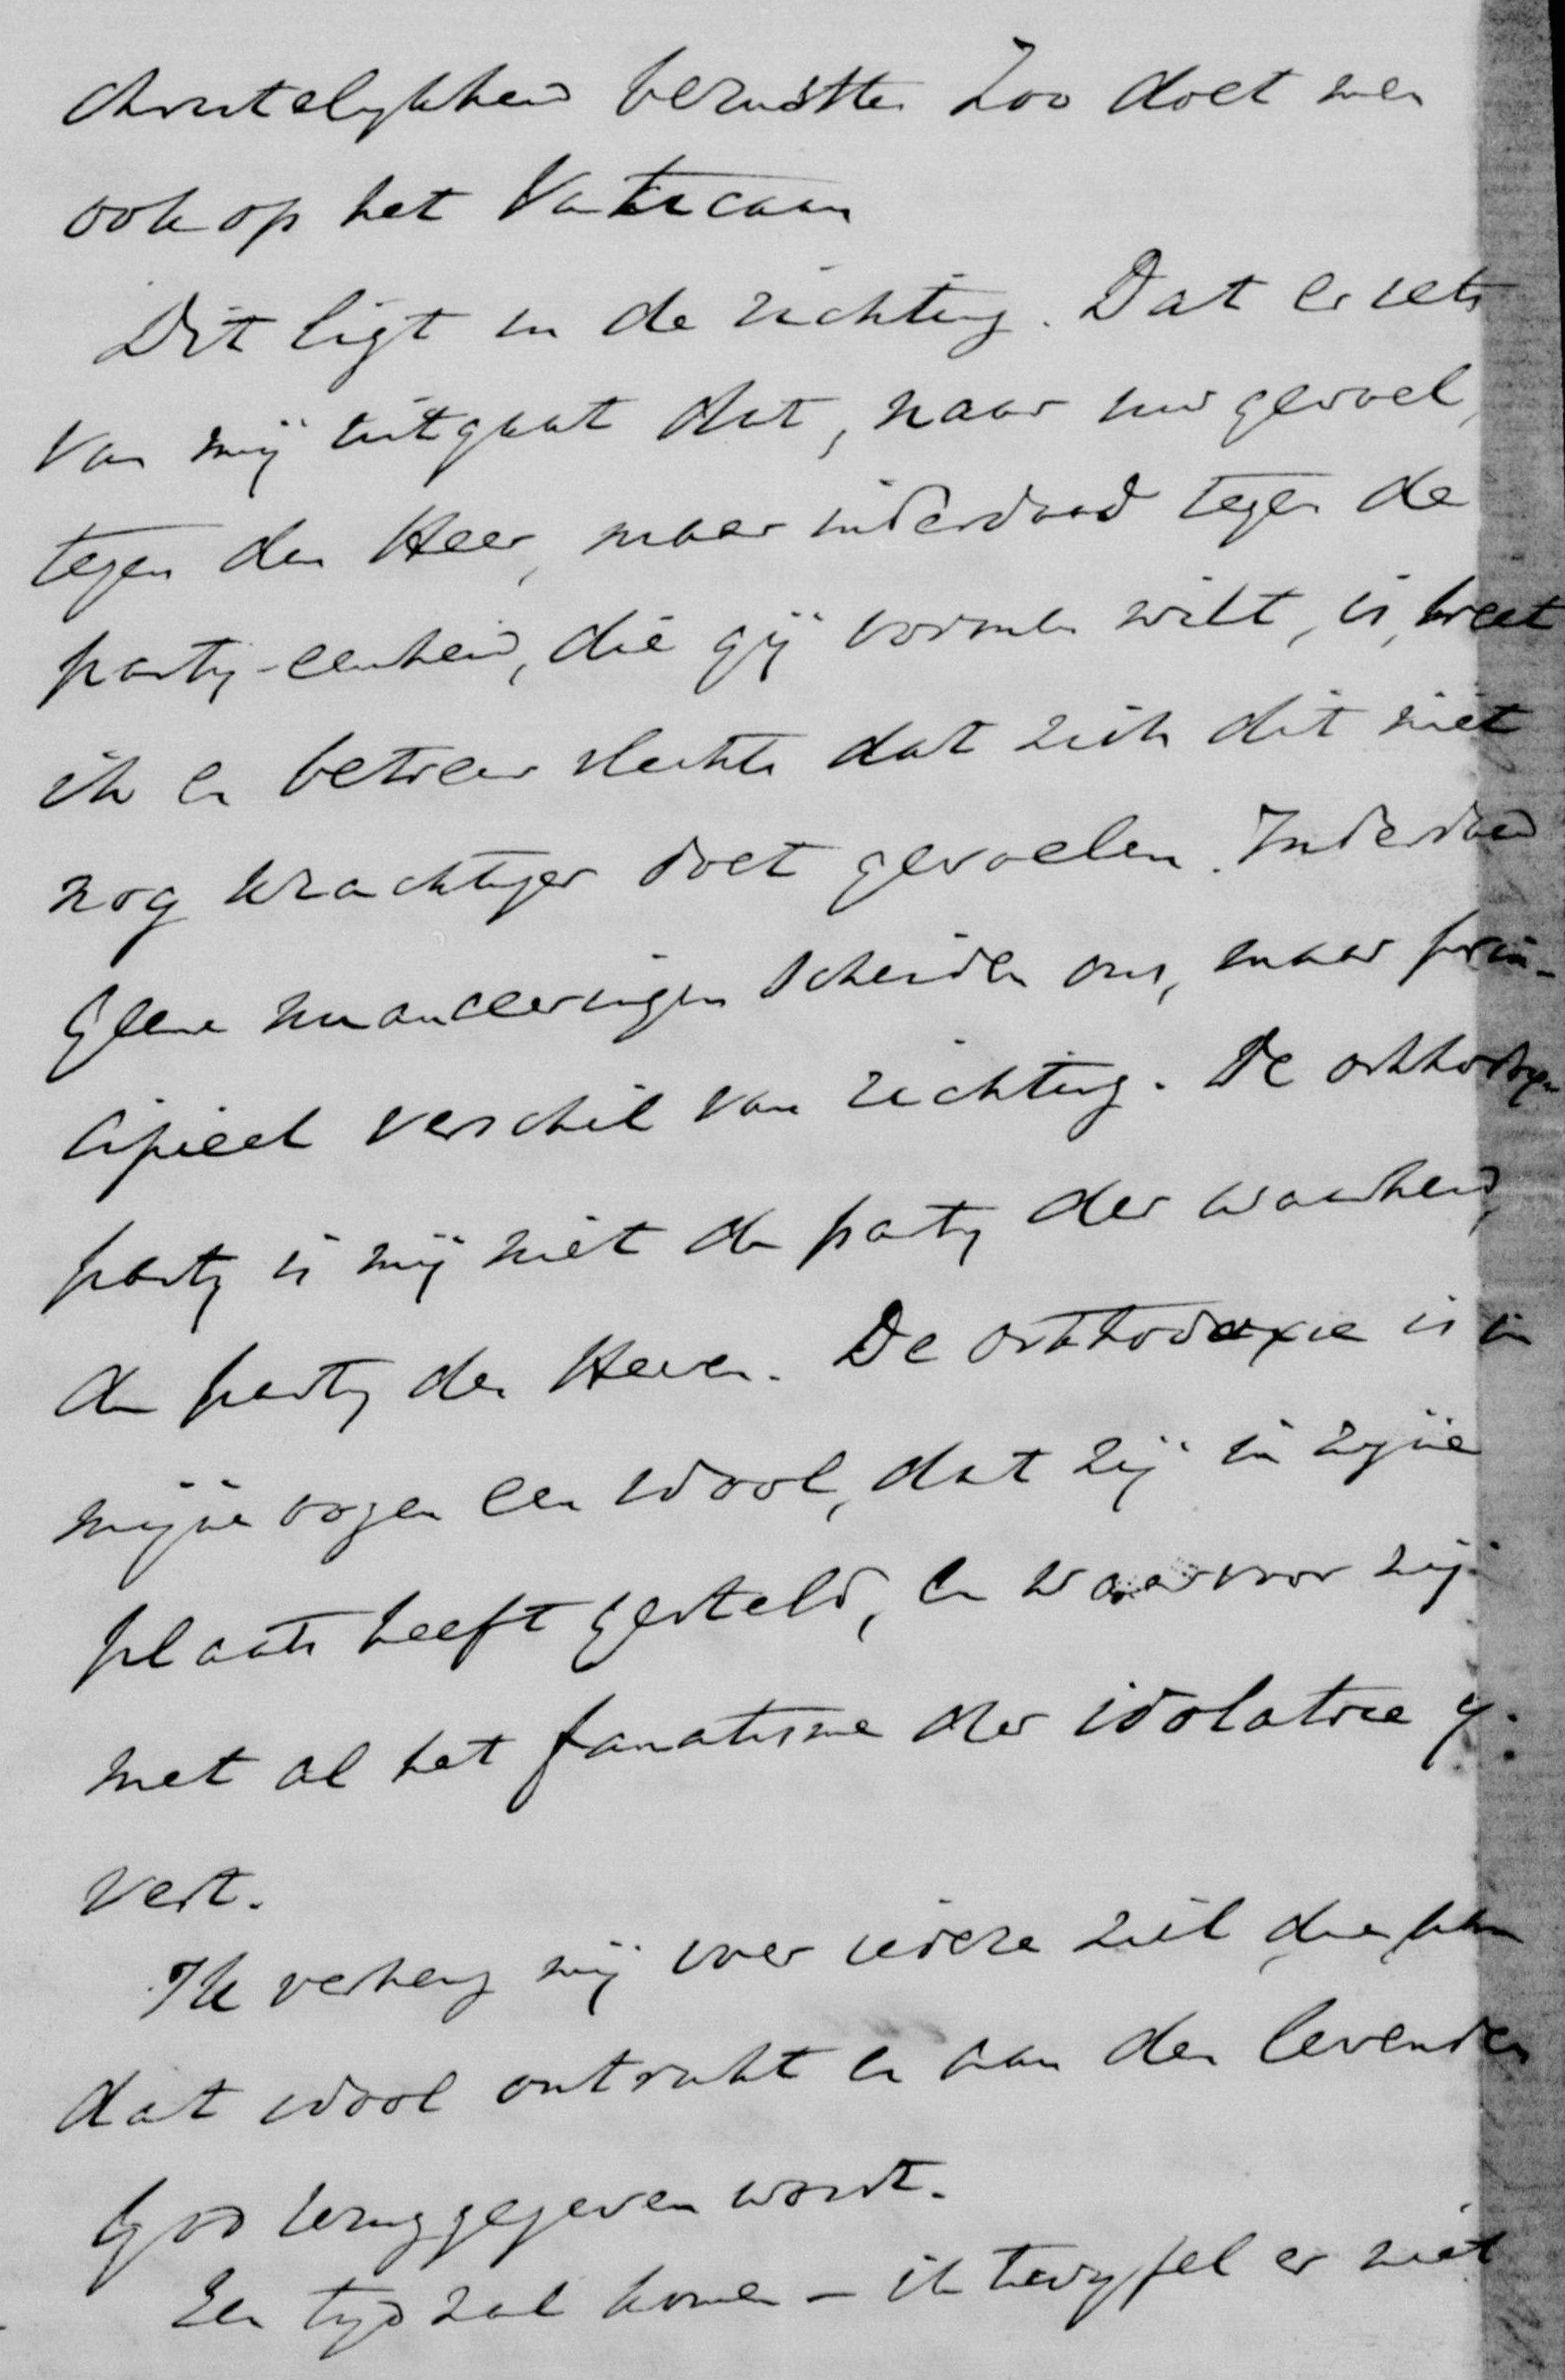 christelykheid berustte. Zoo doet men
ook op het Vaticaan
Dit ligt in de richting. Dat er iets
van mij uitgaat dat, naar uw gevoel,
tegen den Heer, maar inderdaad tegen de
party-eenheid, die gij vormen wilt, is, weet
ik en betreur slechts dat zich dit niet
nog krachtiger doet gevoelen. Inderdaad
geene nuanceeringen scheiden ons, maar prin-
cipieel verschil van richting. De orthodoxe
party is mij niet de party der waarheid,
de party des Heeren. De orthodoxie is in
mijne oogen een idool, dat zij in zijne
plaats heeft gesteld, en waarvoor zij
met al het fanatisme der idolatrie y-
vert.
Ik verheug mij over iedere ziel die aan
dat idool ontrukt en aan den levenden
God teruggegeven wordt.
Een tyd zal komen - ik twyfel er niet